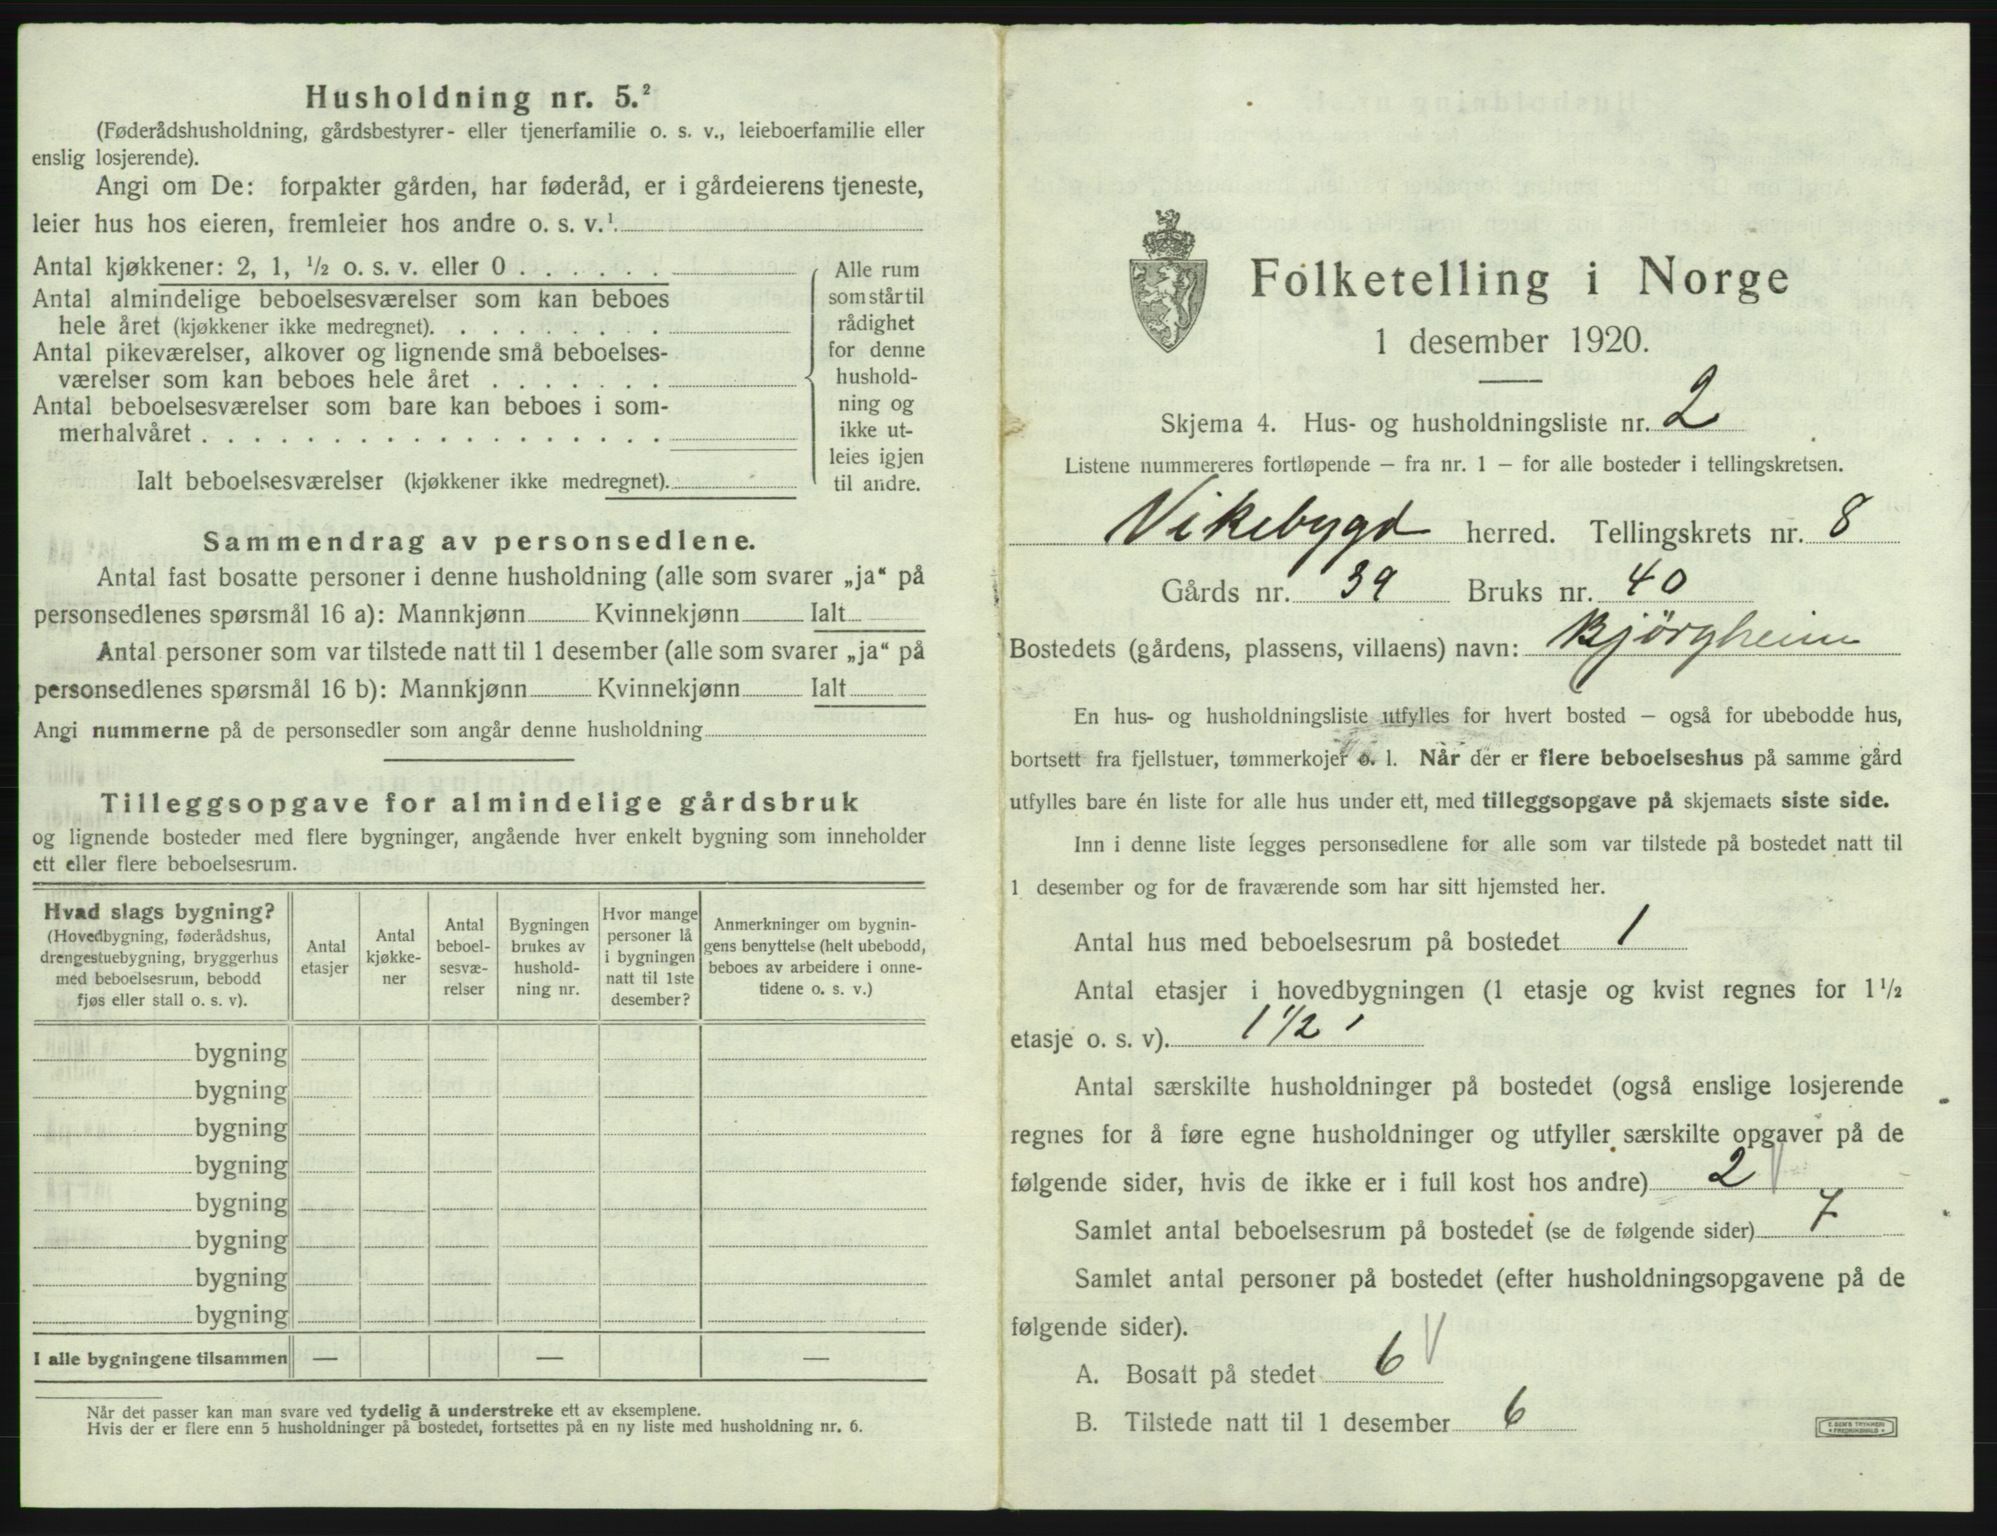 Husholdning nr. 5.²
(Føderådshusholdning, gårdsbestyrer- eller tjenerfamilie o. s. v., leieboerfamilie eller
enslig losjerende).
Angi om De: forpakter gården, har føderåd, er i gårdeierens tjeneste,
leier hus hos eieren, fremleier hos andre o. s. v.¹
Antal kjøkkener: 2, 1, ½ o. s. v. eller 0 . . . . . .
Antal almindelige beboelsesværelser som kan beboes
hele året (kjøkkener ikke medregnet). . . . . . . . .
Antal pikeværelser, alkover og lignende små beboelses-
værelser som kan beboes hele året . . . . . . .
Antal beboelsesværelser som bare kan beboes i som-
merhalvåret . . . . . . . . . . . . . . . . . .
Ialt beboelsesværelser (kjøkkener ikke medregnet).
Alle rum
som står til
rådighet
for denne
hushold-
ning og
ikke ut-
leies igjen
til andre.
Sammendrag av personsedlene.
Antal fast bosatte personer i denne husholdning (alle som svarer „ja“ på
personsedlenes spørsmål 16 a): Mannkjønn Kvinnekjønn Ialt
Antal personer som var tilstede natt til 1 desember (alle som svarer „ja“ på
personsedlenes spørsmål 16 b): Mannkjønn Kvinnekjønn Ialt
Angi nummerne på de personsedler som angår denne husholdning
Tilleggsopgave for almindelige gårdsbruk
og lignende bosteder med flere bygninger, angående hver enkelt bygning som inneholder
ett eller flere beboelsesrum.
Hvad slags bygning?
(Hovedbygning, føderådshus,
drengestuebygning, bryggerhus
med beboelsesrum, bebodd
fjøs eller stall o. s. v).
Antal
etasjer
Antal
kjøkke-
ner
Antal
beboel-
sesvæ-
relser
Bygningen
brukes av
hushold-
ning nr.
Hvor mange
personer lå
i bygningen
natt til 1ste
desember?
Anmerkninger om bygnin-
gens benyttelse (helt ubebodd,
beboes av arbeidere i onne-
tidene o. s. v.)
bygning
bygning
bygning
bygning
bygning
bygning
bygning
bygning
I alle bygningene tilsammen — — —
Når det passer kan man svare ved tydelig å understreke ett av eksemplene.
Hvis der er flere enn 5 husholdninger på bostedet, fortsettes på en ny liste med husholdning nr. 6.
Folketelling i Norge
1 desember 1920.
Skjema 4. Hus- og husholdningsliste nr. 2
Listene nummereres fortløpende – fra nr. 1 – for alle bosteder i tellingskretsen.
Vikebygd herred. Tellingskrets nr. 8
Gårds nr. 39 Bruks nr. 40
Bostedets (gårdens, plassens, villaens) navn: Bjørgheim
En hus- og husholdningsliste utfylles for hvert bosted – også for ubebodde hus,
bortsett fra fjellstuer, tømmerkojer o. l. Når der er flere beboelseshus på samme gård
utfylles bare én liste for alle hus under ett, med tilleggsopgave på skjemaets siste side.
Inn i denne liste legges personsedlene for alle som var tilstede på bostedet natt til
1 desember og for de fraværende som har sitt hjemsted her.
Antal hus med beboelsesrum på bostedet 1
Antal etasjer i hovedbygningen (1 etasje og kvist regnes for 1½
etasje o. s. v). 1 1/2
Antal særskilte husholdninger på bostedet (også enslige losjerende
regnes for å føre egne husholdninger og utfyller særskilte opgaver på de
følgende sider, hvis de ikke er i full kost hos andre) 2
Samlet antal beboelsesrum på bostedet (se de følgende sider) 7
Samlet antal personer på bostedet (efter husholdningsopgavene på de
følgende sider).
A. Bosatt på stedet 6
B. Tilstede natt til 1 desember 6